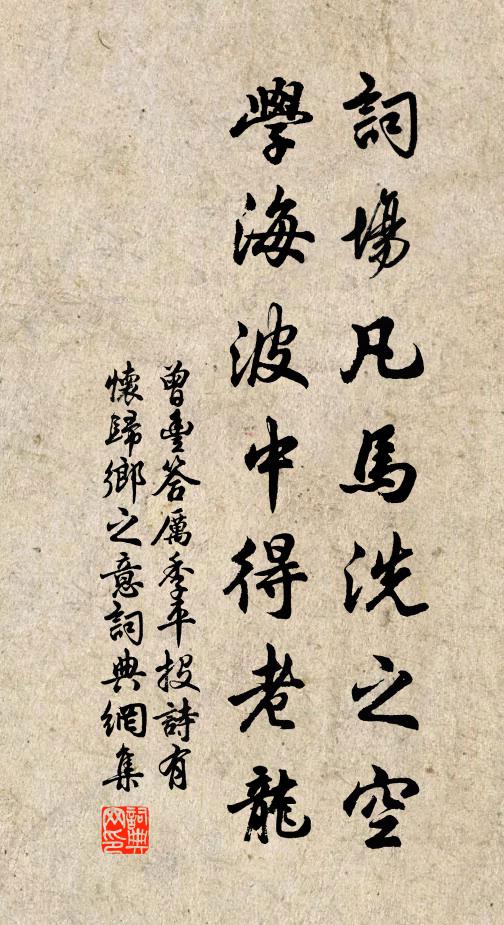 詞場凡馬洗之空
學海波中得老龍
曾豐答厲季平投詩有
懷歸鄉之意詞典網集
詞典
网印